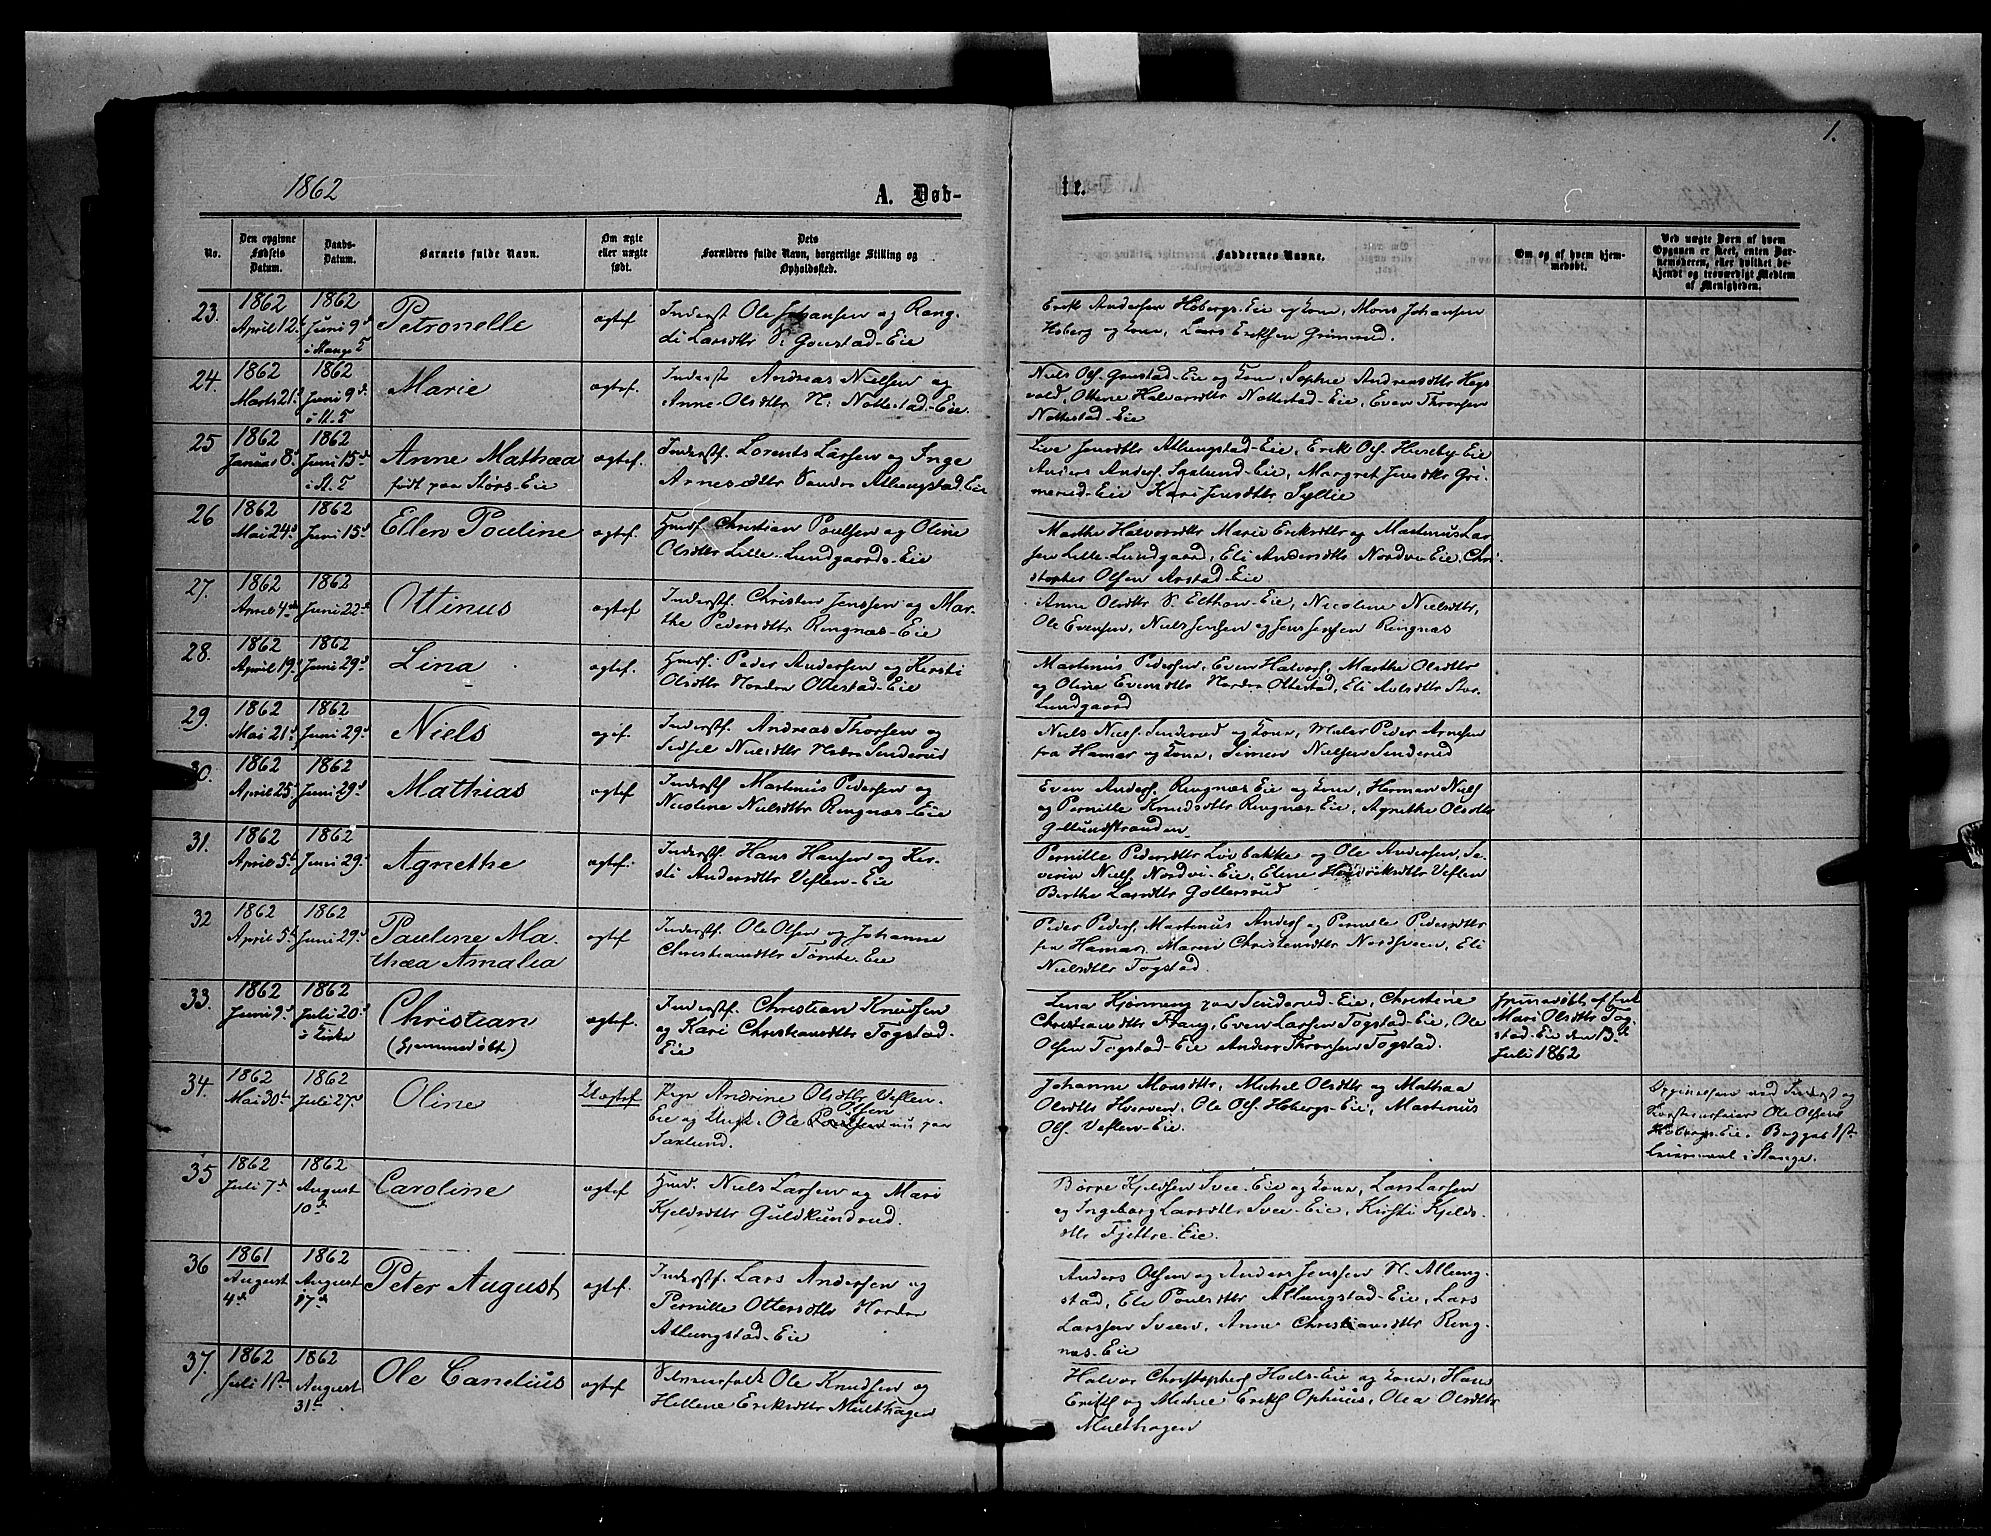 1.
1862
A. Døb-
te.
No.
Den opgivne Fødsels Datum.
Daabs-Datum.
Barnets fulde Navn.
Om ægte eller uægte født.
Dets Forældres fulde Navn, borgerlige Stilling og Opholdssted.
Faddernes Navne.
Om og af hvem hjemmedøbt.
Ved uægte Børn af hvem Opgaven er skeet, enten Barnemoderen, eller hvilket bekjendt og troværdigt Medlem af Menigheden.
23. 1862 April 12. 1862 Juni 9d i Stange
Petronelle
ægtef
Inderst Ole Johansen og Rang-
di Larsdtr S. Gonstad-Eie
Erik Andersen Hobergs-Eie og Kone, Mons Johansen
Hoberg og Kone, Lars Eriksen Grimerud.
24 1862 Marts 21. 1862 Juni 9d
Marie
ægtef.
Inderst Andreas Nielsen og
Anne Olsdtr N. Nottestad-Eie.
Niels Ols. Gonstad-Eie og Kone, Sophie Andreasdtr Hegs-
vold, Ottine Halvorsdtr Nottestad-Eie, Even Thronsen
Nottestad-Eie
25 1862 Januar 8d 1862 Juni 15d
Anne Mathæa
født paa Hors-Eie
ægtef.
Inderstf. Lorents Larsen og Inge
Arnesdtr Søndre Atlungstad-Eie
Live Jensdtr Atlungstad-Eie, Erik Ols. Huseby-Eie
Anders Anders. Saxlund-Eie, Margret Jensdtr Gri-
merud-Eie Kari Jensdtr Syltie
26 1862 Mai 24d 1862 Juni 15d
Ellen Pouline
ægtef.
Husf. Christian Poulsen og Oline
Olsdtr Lille-Lundgaards-Eie
Marthe Halvorsdtr Marie Eriksdtr og Martinus Lar-
sen Lille-Lundgaard, Eli Andersdtr Nordvi-Eie, Chri-
stopher Olsen Arstad-Eie
27. 1862 April 4de 1862 Juni 22d
Ottinus
ægtef
Inderstf. Christen Jenssen og Mar-
the Pedersdtr Ringnæs-Eie
Anne Olsdtr S. Elthon-Eie, Nicoline Nielsdtr,
Ole Evensen, Niels Jensen og Jens Jensen Ringnæs
28. 1862 April 19. 1862 Juni 29d
Lina
ægtef.
Husf. Peder Andersen og Kersti
Olsdtr Nordre Ottestad-Eie
Martinus Pedersen, Even Halvors. Marthe Olsdtr
og Oline Evensdtr Nordre Ottestad, Eli Avlsdtr Stor-
Lundgaard
29. 1862 Mai 21d 1862 Juni 29d
Niels
ægtf.
Inderstf. Andreas Thorsen og
Sidsel Nielsdtr Nedre Sinderud
Niels Niels. Sinderud og Kone, Maler Peder Arnesen
fra Hamar og Kone, Simen Nielsen Sinderud
30. 1862 April 25. 1862 Juni 29d
Mathias
ægtef
Inderstf Martinus Pedersen og
Nicoline Nielsdtr Ringnæs-Eie
Even Anders. Ringnæs Eie og Kone, Herman Niels
og Pernille Knudsdtr Ringnæs-Eie, Agnethe Olsdtr
Gillundstranden
31. 1862 April 5t 1862 Juni 29d
Agnethe
ægtef.
Inderstf. Hans Hansen og Ker-
sti Andersdtr Veflen-Eie
Pernille Pedersdtr Lovbakke og Ole Andersen, Se-
verin Niels. Nordvi-Eie, Eline Hendriksdtr Veflen
Berthe Larsdtr Gollersrud
32 1862 April 5t 1862 Juni 29d
Pauline Ma-
thæa Amalia
ægtef
Inderstf. Ole Olsen og Johanne
Christiansdtr Tomte-Eie
Peder Peders. Martinus Anders og Pernille Pedersdtr
fra Hamar, Marie Christensdtr Nordsveen, Eli
Nielsdtr Togstad.
33. 1862 Juni 9d 1862 Juli 20d i Kirke
Christian
(hjemmedøbt)
ægtef.
Inderstf. Christian Knudsen
og Kari Christiansdtr Togstad-
Eie
Lina Kjønning paa Sinderud-Eie, Christine
Christiansdtr Stang, Even Larsen Togstad-Eie, Ole
Olsen Togstad-Eie Anders Thronsen Togstad.
Hjemmedøbt af Enk
Mari Olsdtr Tog-
stad-Eie den 13de
Juli 1862
34. 1862 Mai 30te 1862 Juli 27d
Oline
Uægtef
Pige Andrine Olsdtr Veflen-
Eie og Ungk. Ole Poulsen Olsen nu paa
Saxlund.
Johanne Monsdtr, Michel Olsdtr og Mathæa
Olsdtr Hverven, Ole Ols. Hobergs-Eie, Martinus
Ols. Veflen-Eie.
Opgivelsen ved Inderst og
Ole Olsen
Hobergs-Eie. Begges 1ste
Leiermaal i Stange.
35 1862 Juli 7d 1862 August 10d
Caroline
ægtef
Husf. Niels Larsen og Mari
Kjeldsdtr Guldkundrud.
Børre Kjeldsen Svee-Eie og Kone, Lars Larsen
og Ingeborg Larsdtr Svee-Eie, Kirsti Kjelds-
dtr Fjettre-Eie.
36 1861 August 4d 1862 August 17d
Peter August
ægtef.
Inderstf. Lars Andersen og
Pernille Ottersdtr Nordre
Atlungstad-Eie
Anders Olsen og Anders Jenssen N. Atlung-
stad, Ele Poulsdtr Atlungstad-Eie, Lars
Larssen Sveen, Anne Christiansdtr Ring-
næs-Eie
37. 1862 Juli 11te 1862 August 31te
Ole Canelius
ægtef
Selveierfolk Ole Knudsen og
Hellene Eriksdtr Multhagen
Halvor Christophers Hoels-Eie og Kone, Hans
Eriks og Michel Eriks Ophuus, Olea Olsdtr
Multhagen